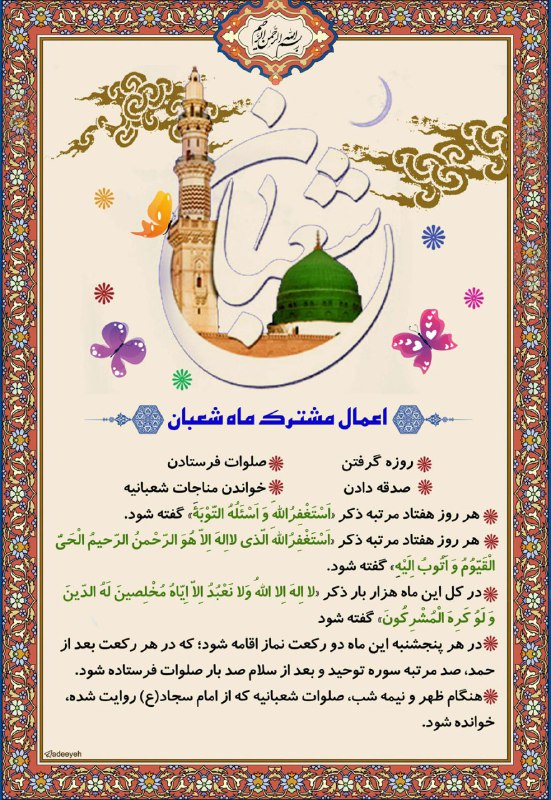 بسم الله الرحمن الرحیم
شعبان
اعمال مشترک ماه شعبان
روزه گرفتن
صلوات فرستادن
صدقه دادن
خواندن مناجات شعبانیه
هر روز هفتاد مرتبه ذکر «اَسْتَغْفِرُاللهَ وَ اَسْئَلُهُ التَّوْبَةَ» گفته شود.
هر روز هفتاد مرتبه ذکر «اَسْتَغْفِرُاللهَ الَّذی لااِلهَ اِلاّ هُوَ الرَّحْمنُ الرَّحیمُ الْحَیُّ
الْقَیّوُمُ وَ اَتُوبُ اِلَیْهِ» گفته شود.
در کل این ماه هزار بار ذکر «لا اِلهَ اِلا اللهُ وَلا نَعْبُدُ اِلاّ اِیّاهُ مُخْلِصینَ لَهُ الدّینَ
وَ لَوُ کَرِهَ الْمُشْرِکُونَ» گفته شود
در هر پنجشنبه این ماه دو رکعت نماز اقامه شود؛ که در هر رکعت بعد از
حمد، صد مرتبه سوره توحید و بعد از سلام صد بار صلوات فرستاده شود.
هنگام ظهر و نیمه شب، صلوات شعبانیه که از امام سجاد(ع) روایت شده،
خوانده شود.
adeeyeh